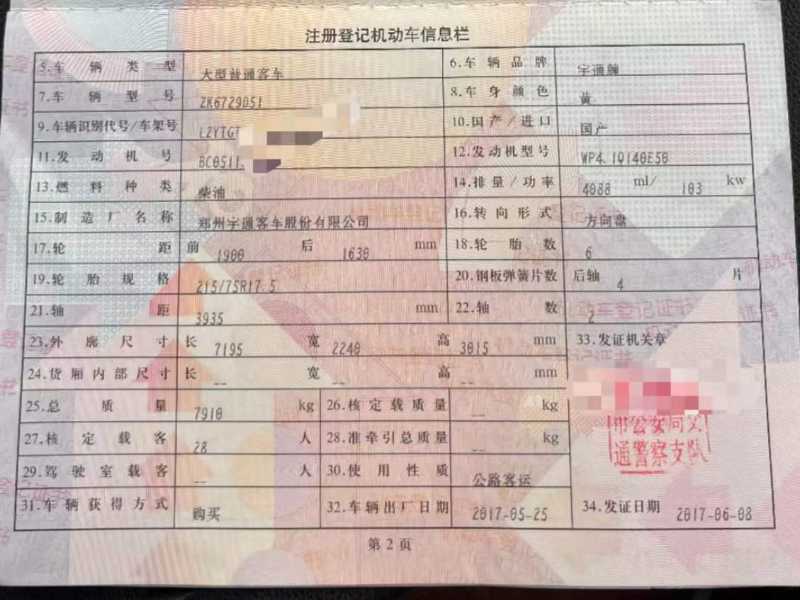 注册登记机动车信息栏
5.车辆类型 大型普通客车 6.车辆品牌 宇通牌
7.车辆型号 ZK6729D51 8.车身颜色 黄
9.车辆识别代号/车架号 L2YTGT 10.国产/进口 国产
11.发动机号 BC0511 12.发动机型号 WP4.1Q140E50
13.燃料种类 柴油 14.排量/功率 4088 ml/ 103 kw
15.制造厂名称 郑州宇通客车股份有限公司 16.转向形式 方向盘
17.轮距 前 1900 后 1630 mm 18.轮胎数 6
19.轮胎规格 215/75R17.5 20.钢板弹簧片数 后轴 4 片
21.轴距 3935 mm 22.轴数 2
23.外廓尺寸 长 7195 宽 2240 高 3015 mm 33.发证机关章
24.货厢内部尺寸 长 -- 宽 -- 高 -- mm
25.总质量 7910 kg 26.核定载质量 -- kg
27.核定载客 28 人 28.准牵引总质量 -- kg
通警察支队
29.驾驶室载客 -- 人 30.使用性质 公路客运
31.车辆获得方式 购买 32.车辆出厂日期 2017-05-25 34.发证日期 2017-06-08
第2页